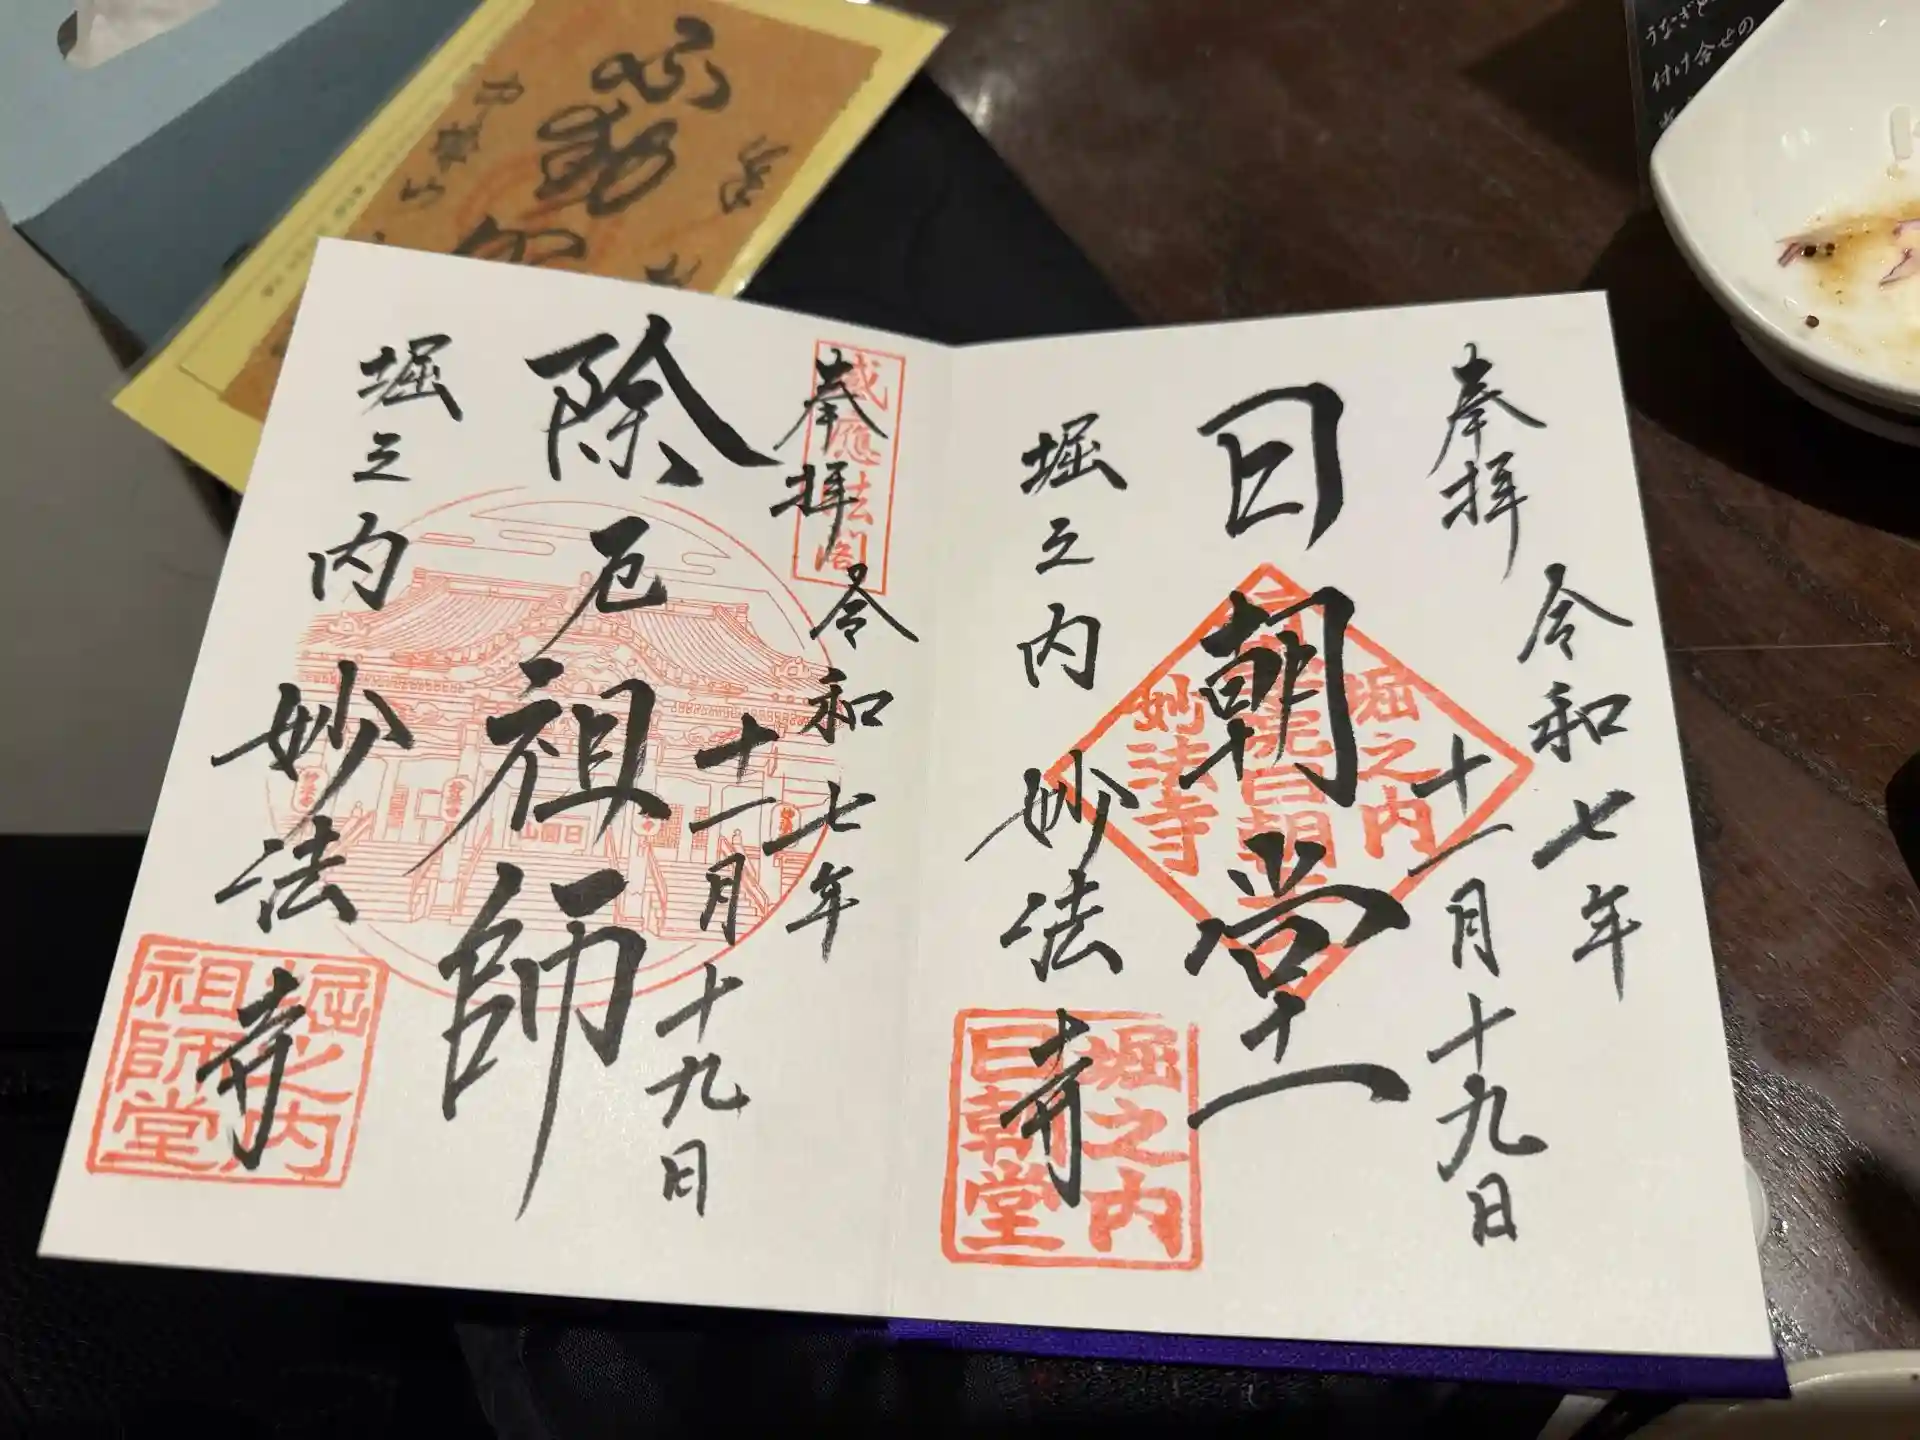 奉拝
令和七年
十一月十九日
日朝堂
堀之内
妙法寺
堀之内
妙法寺
堀之内
日朝堂
奉拝
令和七年
十一月十九日
感應法閣
除厄祖師
堀之内
妙法寺
日圓山
堀之内
祖師堂
不動
うなぎと
付け合せの